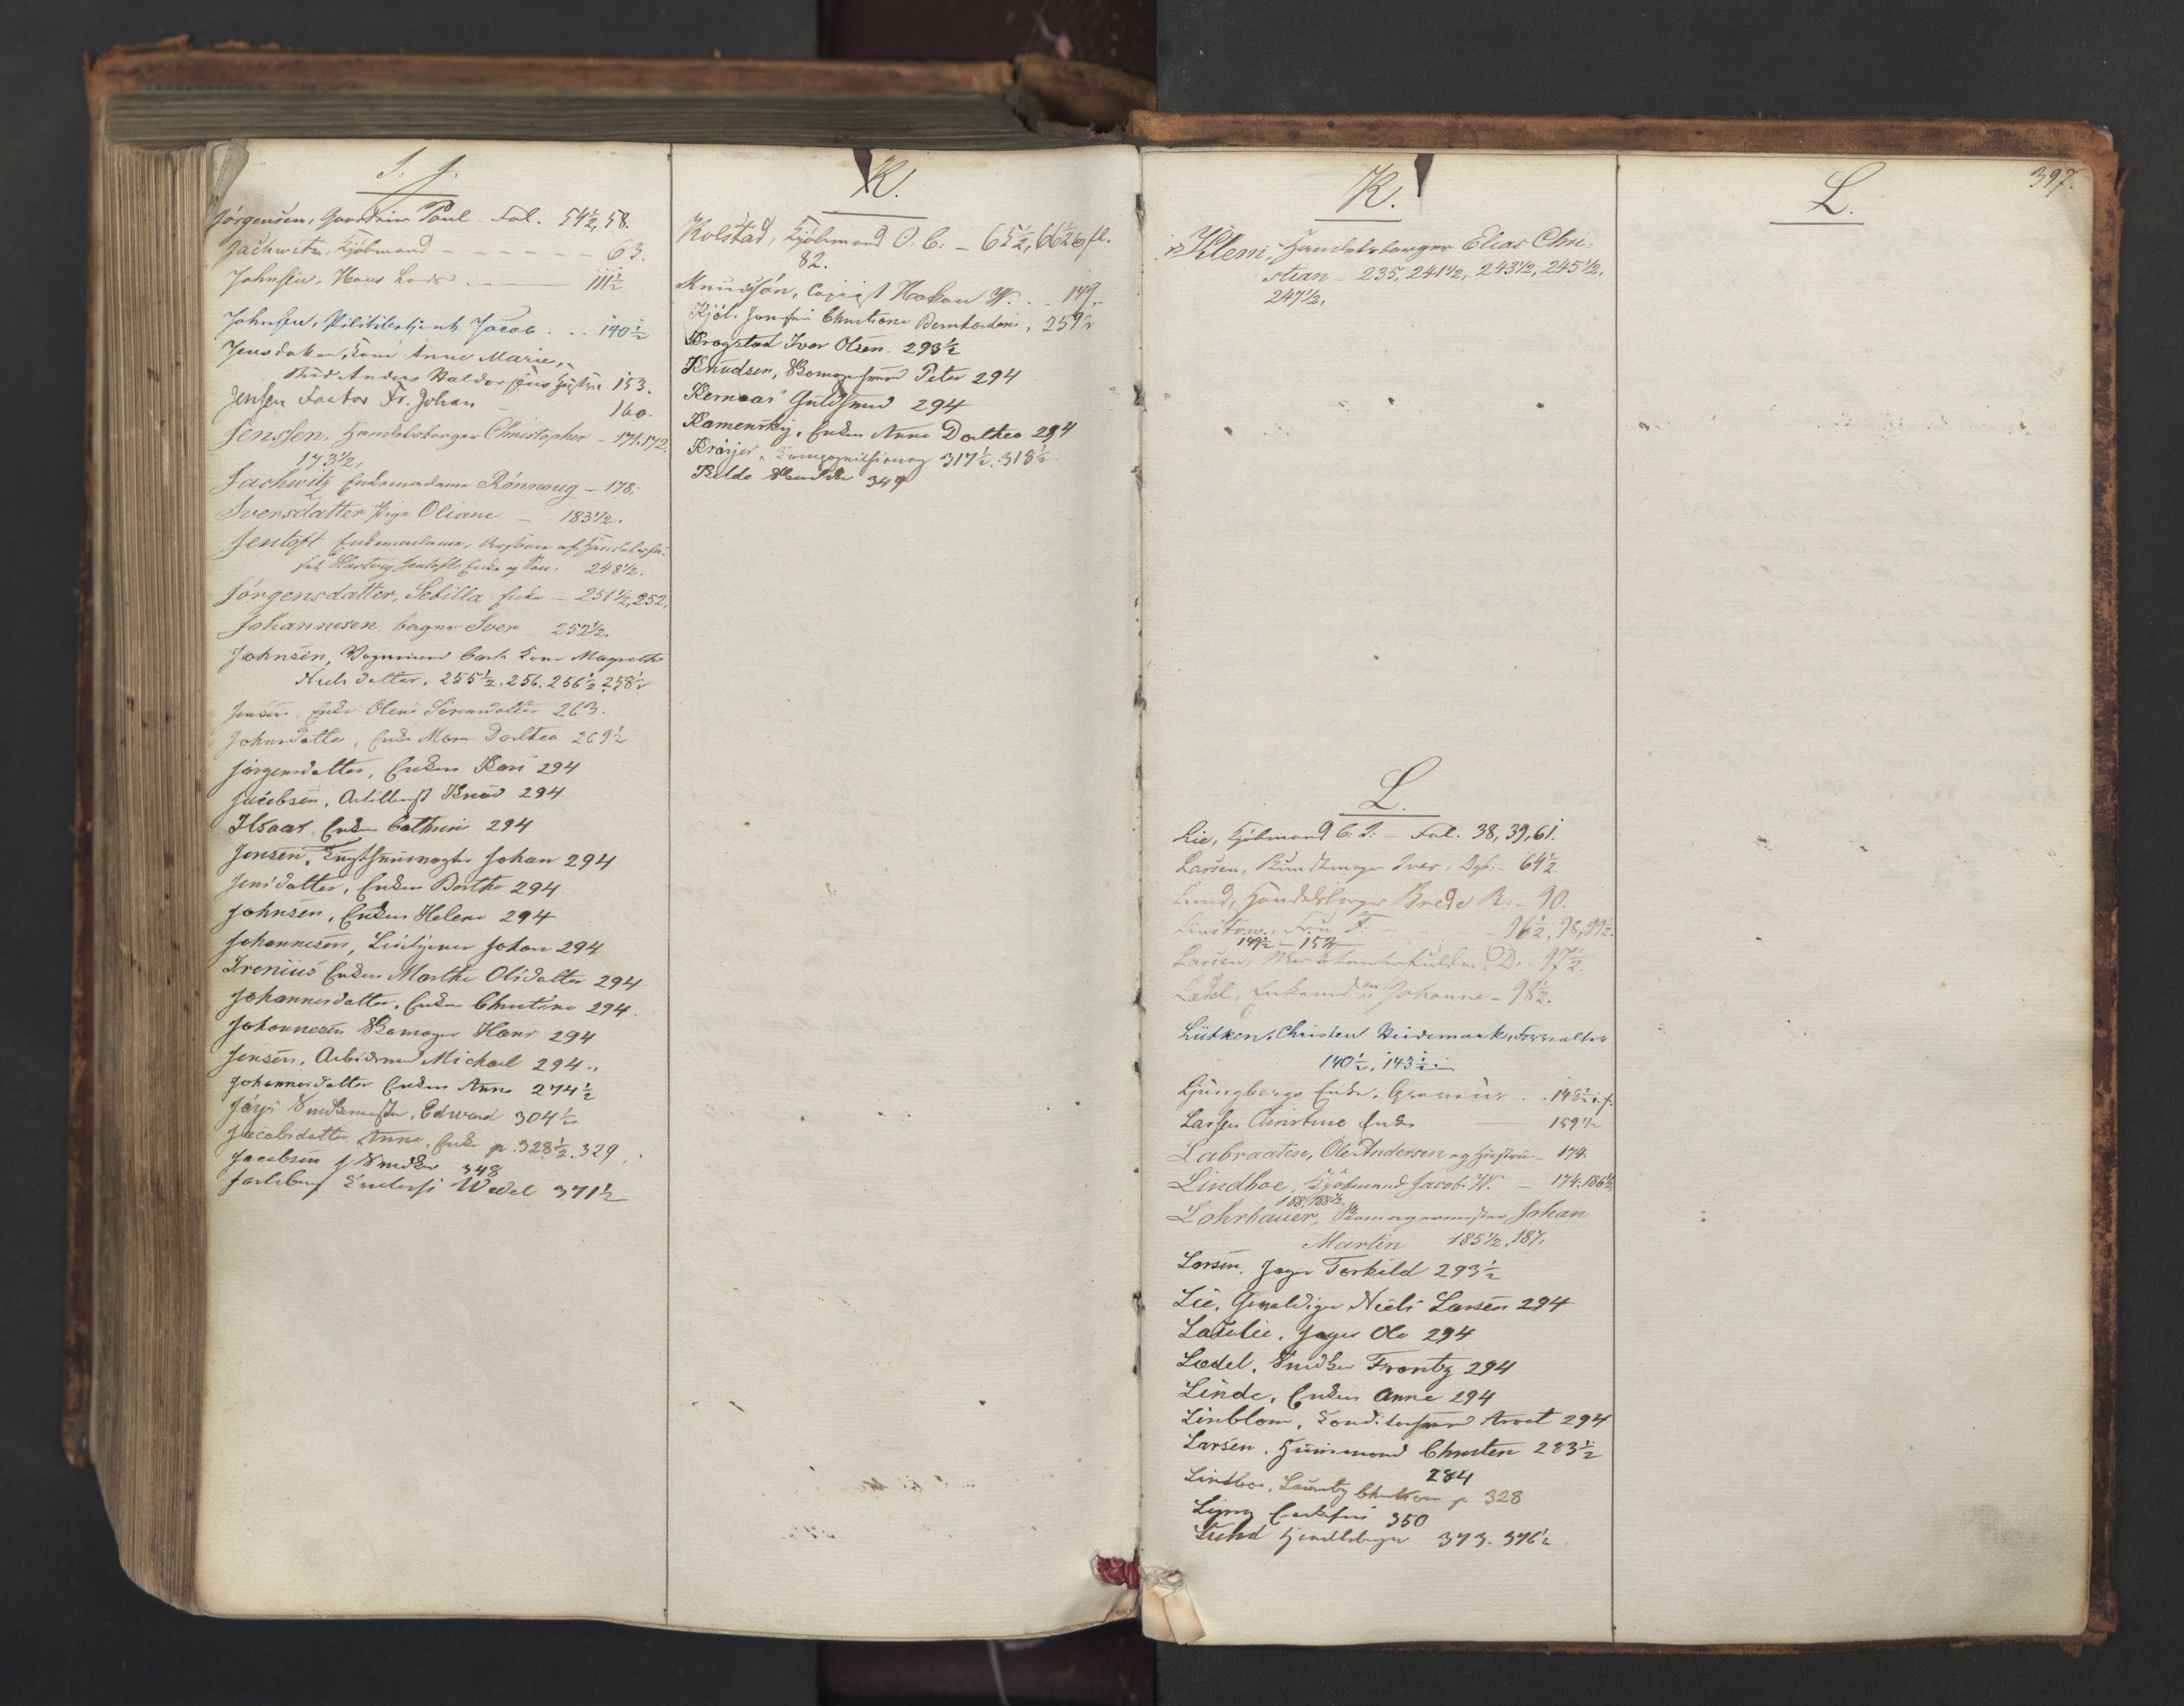 I. J.
Jørgensen, Paul – Fol. 54½, 58.
Jachwitz, Kjøbmand – – – – – – 63.
Johnsen, Hans – – 111½
Johnsen, Politibetjent Jacob . . . 140½
Jensdatter, Anne Marie,
Anders Haldorsens Hustru 153.
Jensen Factor Fr. Johan – 160.
Jenssen, Handelsborger Christopher – 171.172.
173½,
Jachwitz Enkemadame Rönnoug – 178.
Iversdatter Pige Oliane – 183½.
Jentoft Enkemadame,
Hartvig Jentofts Enke og 248½.
Jørgensdatter, Sebilla Enke – 251½, 252,
Johannesen, Iver 252½.
Johnsen, Vognmand Kone Magrethe
Niels datter, 255½. 256. 256½ 258½
Jensen, Enke Olene Sörensdatter 263.
Johnsdatter, Enke Maren Dorthea 269½
Jörgensdatter, Enken Kari 294
Jacobsen, Artillerist Knud 294
Ilsaas, Enken Cathrine 294
Jensen, Johan 294
Jensdatter, Enken Berthe 294
Johnsen, Enken Helene 294
Johannesen, Johan 294
Irenius Enken Marthe Olsdatter 294
Johannesdatter, Enken Christine 294.
Johannesen Skomager Hans 294
Jensen, Arbeidsmand Michael 294.
Johannesdatter Enken Anne 274½
Snedkermester, Edvard 304½
Jacobsdatter, Anne, Enke p. 328½. 329.
Jacobsen Snedker 348
Wedel 371½
K.
Kolstad, Kjøbmand O. C. – 65½, 66½ og fl.
82.
Knudsön, Copiist Hakon W. . . 149.
Christiane Bernhardine, 259½
Krogstad Iver Olsen. 293½
Knudsen, Skomagersvend Peter 294
Kernaas Guldsmed 294
Kamensky, Enken Anne Dorthea 294
Kröyer, 317½. 318½
349
K.
Klem, Handelsborger Elias Chri-
stian – 235, 241½, 243½, 245½,
247½,
L.
Lie, Kjøbmand C. I. – Fol. 38, 39, 61.
Larsen, Buntmager Iver, – 64½.
Lund, Handelsborger Brede R. – 90.
Linstow, Fru F. – – – 96½, 98, 99½.
149½ – 152
Larsen, D. – 97½.
Lædel, Johanne – 98½.
Lütken, Christen Heidemark, Forvalter
140½, 143½
Ljungbergs Enke, . . 148½ i. f.
Larsen Christine Enke – 159½
Labraaten, Ole Andersen og Hustru – 174.
Lindboe, Kjöbmand Jacob W. – 174. 186½,
188, 188½,
Lohrbauer, Skomagermester Johan
Martin 185½, 187,
Larsen, Jæger Torkild 293½
Lie, Gevaldiger Niels Larsen 294
Jæger Ole 294
Lædel, Snedker Frantz 294
Linde, Enken Anne 294
Linblom, Conditorsvend Arvet 294
Larsen, Huusmand Christen 283½
284
Lindboe, p 328
350
Lund Handelsborger 373. 376½
L.
397.